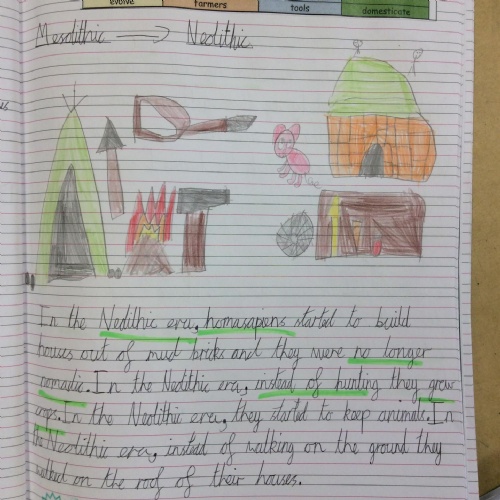 evolve farmers tools domesticate
Mesolithic → Neolithic
In the Neolithic era, homasapiens started to build
houses out of mud bricks and they were no longer
nomadic. In the Neolithic era, instead of hunting they grow
crops. In the Neolithic era, they started to keep animals. In
the Neolithic era, instead of walking on the ground they
walked on the roof of their houses.